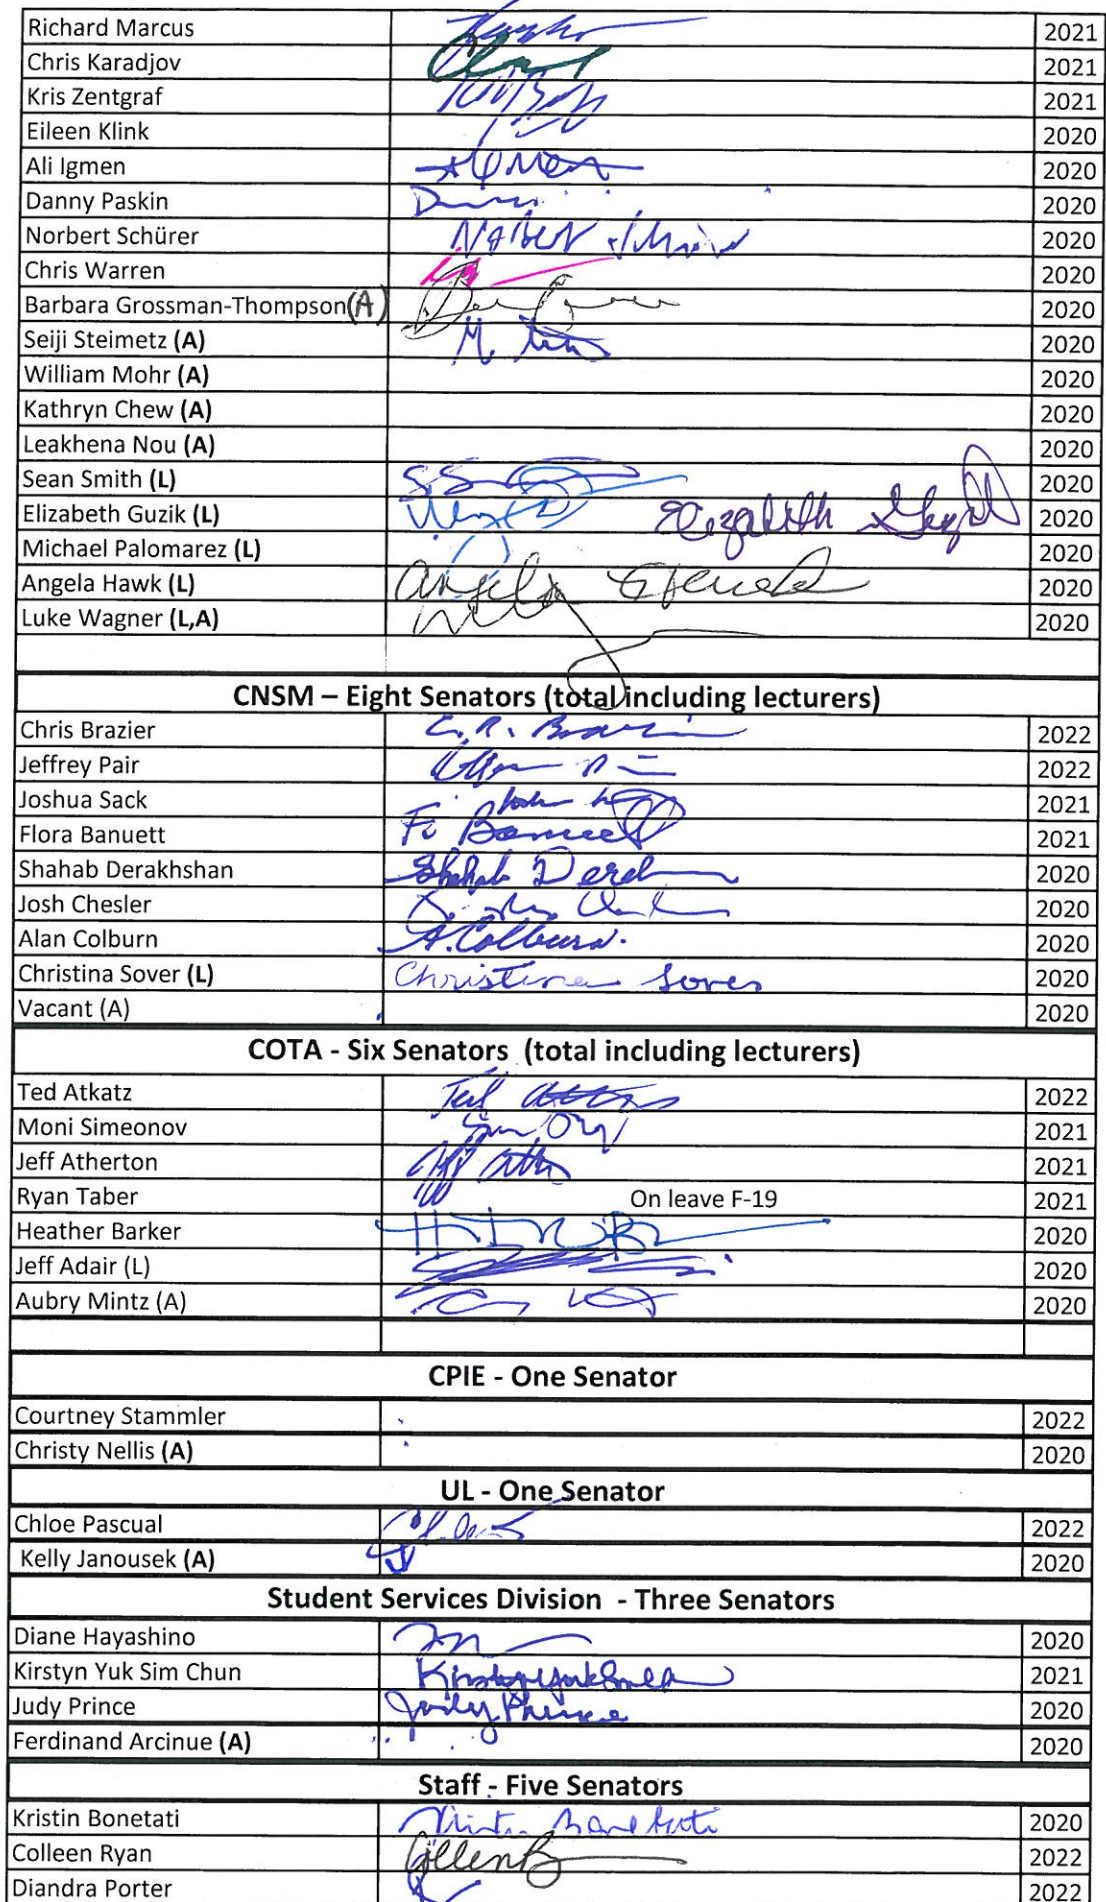 Richard Marcus 2021
Chris Karadjov 2021
Kris Zentgraf 2021
Eileen Klink 2020
Ali Igmen 2020
Danny Paskin 2020
Norbert Schürer Norbert 2020
Chris Warren 2020
Barbara Grossman-Thompson (A) 2020
Seiji Steimetz (A) 2020
William Mohr (A) 2020
Kathryn Chew (A) 2020
Leakhena Nou (A) 2020
Sean Smith (L) 2020
Elizabeth Guzik (L) Elizabeth 2020
Michael Palomarez (L) 2020
Angela Hawk (L) Angela 2020
Luke Wagner (L,A) 2020
CNSM – Eight Senators (total including lecturers)
Chris Brazier 2022
Jeffrey Pair 2022
Joshua Sack 2021
Flora Banuett 2021
Shahab Derakhshan Shahab 2020
Josh Chesler 2020
Alan Colburn A. Colburn. 2020
Christina Sover (L) Christina Sover 2020
Vacant (A) 2020
COTA - Six Senators (total including lecturers)
Ted Atkatz Ted 2022
Moni Simeonov 2021
Jeff Atherton 2021
Ryan Taber On leave F-19 2021
Heather Barker 2020
Jeff Adair (L) 2020
Aubry Mintz (A) 2020
CPIE - One Senator
Courtney Stammler 2022
Christy Nellis (A) 2020
UL - One Senator
Chloe Pascual 2022
Kelly Janousek (A) 2020
Student Services Division - Three Senators
Diane Hayashino 2020
Kirstyn Yuk Sim Chun 2021
Judy Prince Judy Prince 2020
Ferdinand Arcinue (A) 2020
Staff - Five Senators
Kristin Bonetati 2020
Colleen Ryan 2022
Diandra Porter 2022